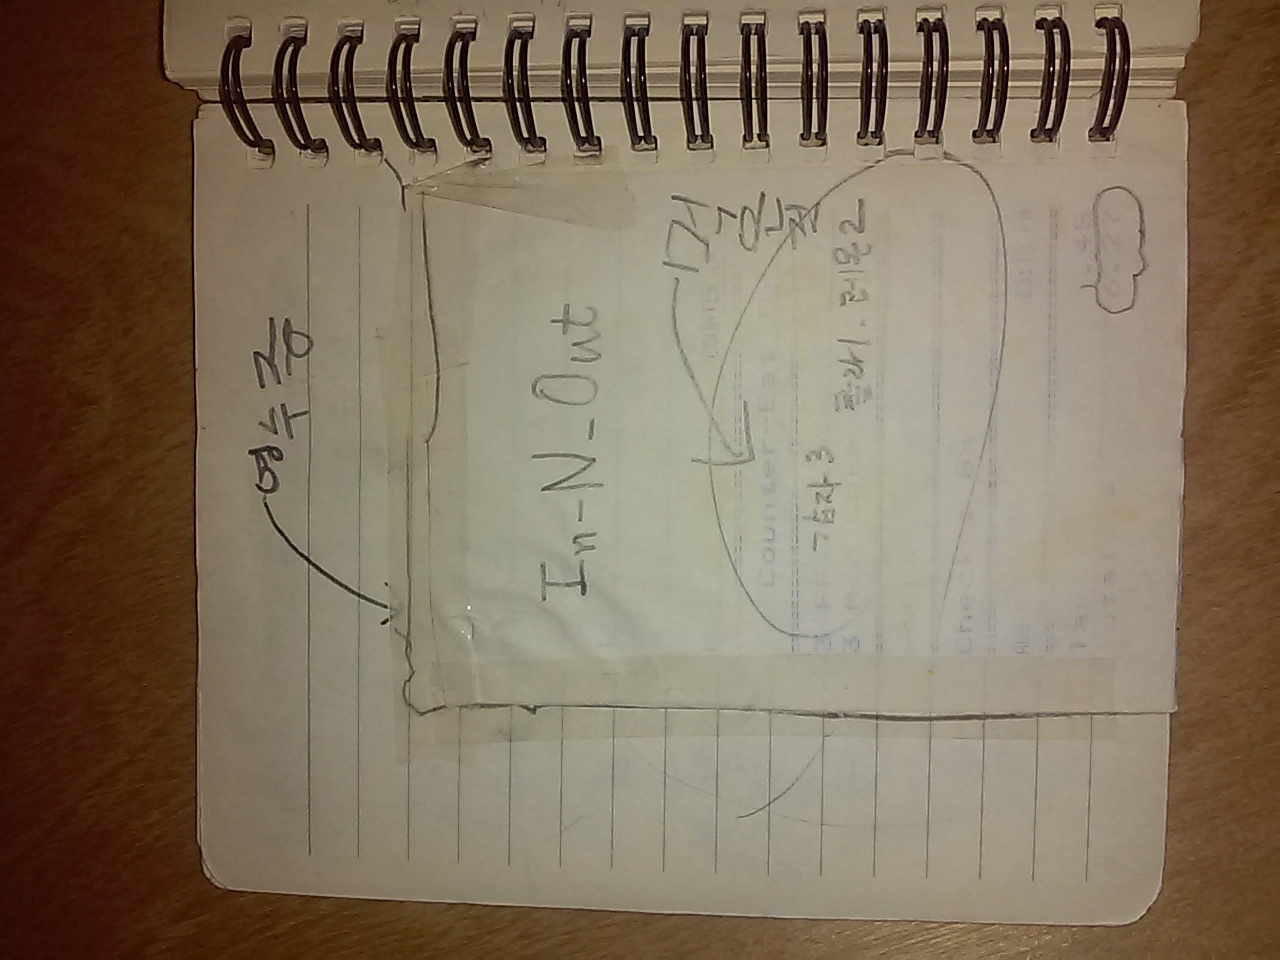 영수증
In-N-Out
먹은것
COUNTER
Counter-Eat In
감자 3
3 FF
콜라 1. 레몬 2
3
Check
Tax 1.45
Total 6.27